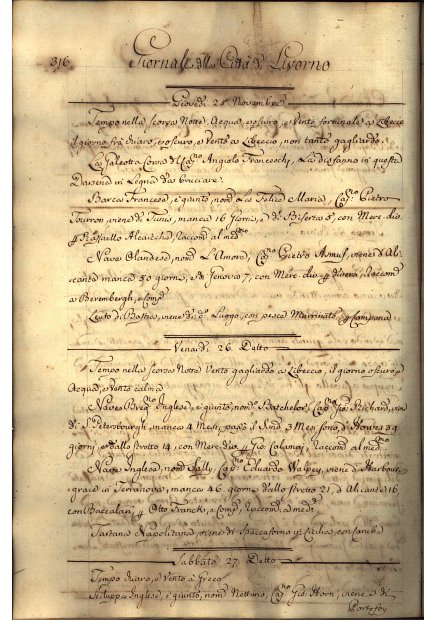 316
Giornale della Città di Livorno
Giovedi 25 Novembre
Tempo nella scorsa Notte, Acqua, e oscuro, e Vento fortunale a Libeccio
il giorno frà chiaro, e oscuro, e Vento a Libeccio, non tanto gagliardo
La Galeotta Corsa del Capno Angiolo Franceschi, La disfanno in questa
Darsena in Legna da bruciare.
Barca Francese, è giunto, nomta La Felice Maria, Capno Pietro
Tourron, viene di Tunis, manca 16 giorni, e di Biserta 8, con Merc. div.
p Raffaello Racomd al medmo
Nave Olandese, nomta L'Amora, Capno Guerdt Asmus, viene d'Ali-
canta manca 30 giorni, e di Genova 7, con Merc. div. p diversi, Racomd
a Berembergh, e Compi
Leuto di Bastia, viene di do Luogo, con pesce Marinato, p Campana
Venardi 26. Detto
Tempo nella scorsa Notte Vento gagliardo a Libeccio, il giorno oscuro, e
Acqua, e Vento calma
Nave Inglese, è giunto, nomta Batchelor, Capno Gio: Richard, viene
di S. Petersbourgh, manca 4 Mesi, passò il Sund 3 Mesi sono, d'
giorni, e dallo stretto 14, con Merc. div. p Gio: Calamai, Racomd al medmo
Nave Inglese, nomta Sally, Capno Eduardo Walpey, viene d'Harbour
grace in Terranova, manca 46 giorni, dallo stretto 21, d'Alicante 16
con Baccalari p Otto Franck, e Compi Racomd a medi
Tartana Napolitana, viene di Spaccaforno in Sicilia, con
Sabbato 27. Detto
Tempo chiaro, e Vento à greco
Scluppa Inglese, è giunto, nomta Nettuno, Capno Gio: Horn, viene di